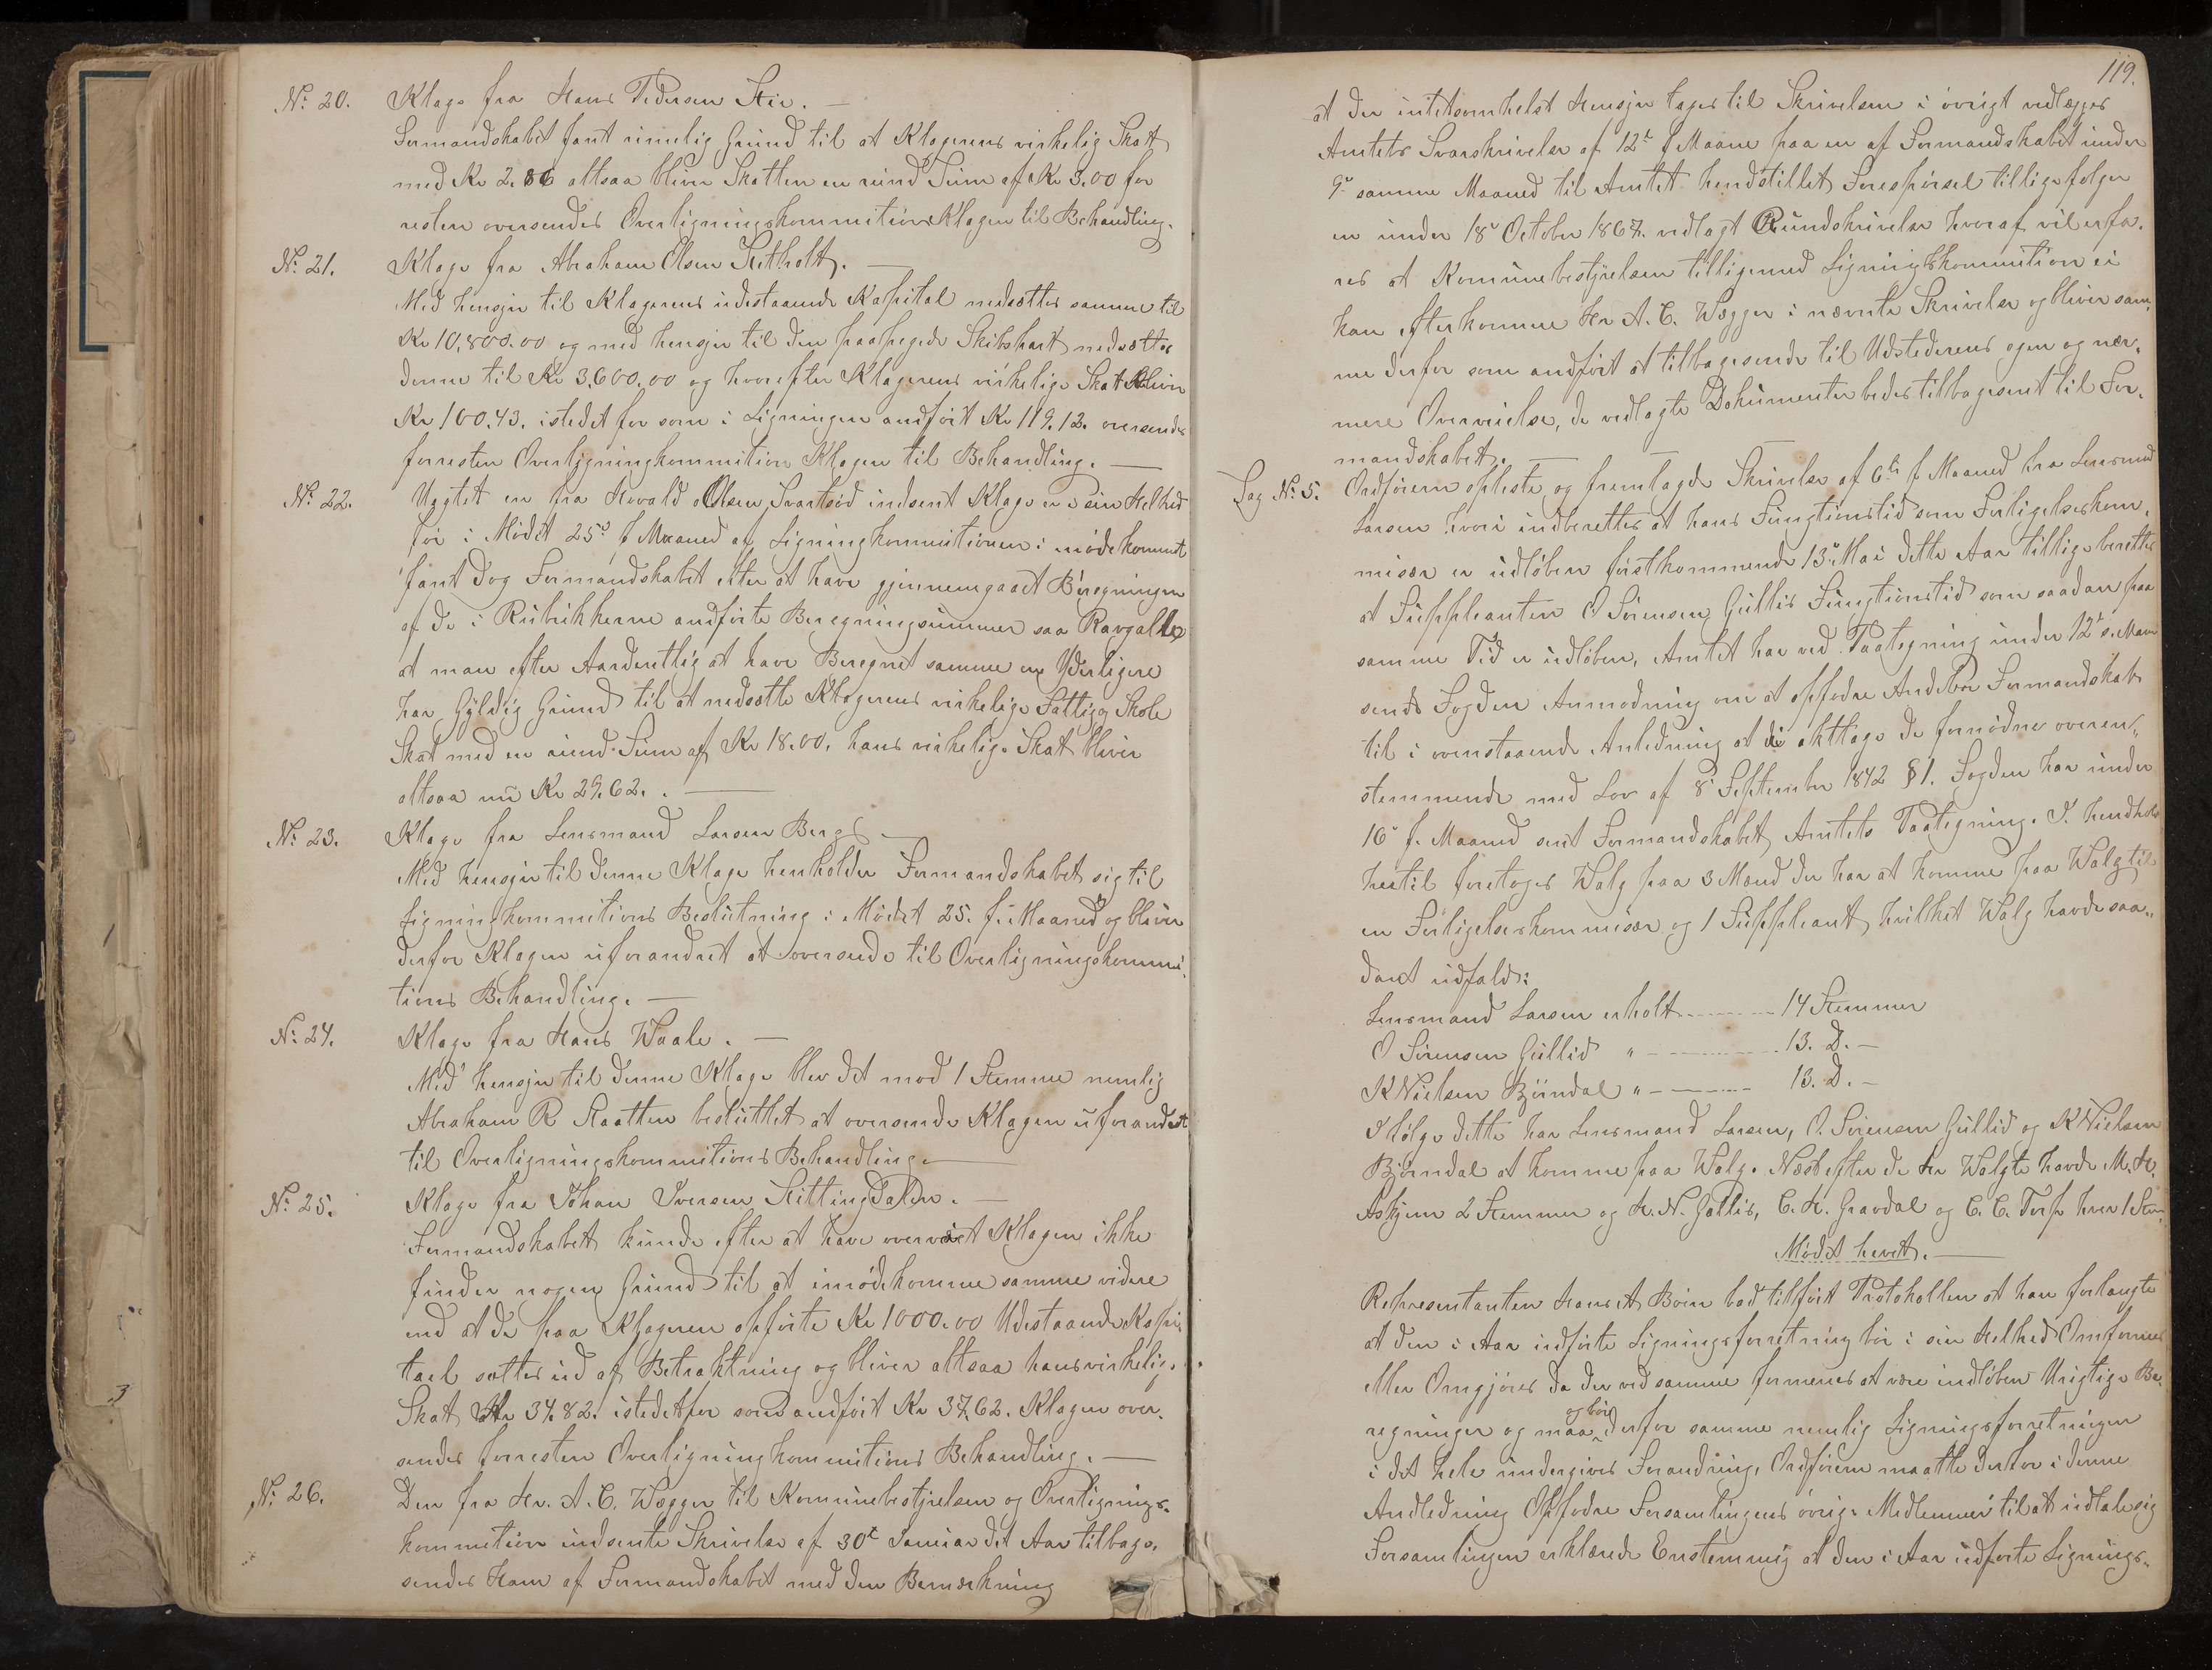 No. 20. Klage fra Hans Pedersen Stie. —
Formandskabet fant rimelig Grund til at Klagerens virkelig Skat
med Kr 2.86 altsaa bliver Skatten en rund Sum af Kr 3.00 for
resten oversendes Overligningskommitions Klagen til Behandling.
No. 21. Klage fra Abraham Olsen Skitholt. —
Med hensyn til Klagerens udestaaende Kapital nedsættes samme til
Kr 10,800.00 og med hensyn til den paapegede Skibspart nedsættes
denne til Kr 3,600.00 og hvorefter Klagerens virkelige Skat bliver
Kr 100.43. istedet for som i Ligningen andført Kr 119.12. oversendes
forresten Overligninghommition Klagen til Behandling. —
No. 22. Uagtet en fra Hovald Olsen Svartsød indsent Klage er i sin Helhed
før i Mødet 25de f Maaned af Ligninghommitionen imødekommet
fant dog Formandskabet efter at have gjennemgaaet Beregningen
af de i Rubrikkerne andførte Beregningsummer saa
at man efter at have Beregnet samme en Yderligere
har Gyldig Grund til at nedsætte Klagerens virkelige Fattig og Skole
Skat med en rund Sum af Kr 18.00. hans virkelige Skat bliver
altsaa nu Kr 29.62. . —
No. 23. Klage fra Lensmand Larsen Berg —
Med hensyn til denne Klage henholder Formandskabet sig til
Ligninghommitions Beslutning i Mødet 25. f. Maaned og bliver
derfor Klagen uforandret at oversende til Overligningskommi-
tions Behandling. —
No. 24. Klage fra Hans Waale. —
Med hensyn til denne Klage blev det mod 1 Stemme nemlig
Abraham R Raatten besluttet at oversende Klagen uforandret
til Overligningskommitions Behandling. —
No. 25. Klage fra Johan Iversen Skittingdalen. —
Formandskabet kunde efter at have overveiet Klagen ikke
finder nogen Grund til at imødekomme samme videre
end at de paa Klageren opførte Kr 1000.00 Udestaaende Kapi-
tael sættes ud af Betraktning og bliver altsaa hans virkelig.
Skat Kr 34.82. istedetfor som andført Kr 37.62. Klagen over-
sendes forresten Overligninghommitions Behandling. —
No. 26. Den fra Hr. A. C. Wegger til Kommunebestyrelsen og Overlignings-
kommition indsente Skrivelse af 30t Januar det Aar tilbage-
sendes Ham af Formandskabet med den Bemærkning
119.
at der intetsomhelst hensyn tages til Skrivelsen i øvrigt vedlegges
Amtets Svarskrivelse af 12t f Maane paa en af Formandskabet under
9de samme Maaned til Amtet hendstillet Forespørsel tillige følger
en under 18de October 1867. vedlagt Rundskrivelse hvoraf vil erfa-
res at Komunebestyrelsen tilligemed Ligningskommition ei
kan efterkomme Hr A. C. Wegger i nævnte Skrivelse og bliver sam-
me derfor som andført at tilbagesende til Udstederens egen og nær-
mere Overveielse, de vedlagte Dokumenter bedes tilbagesent til For-
mandskabet. —
Sag No. 5. Ordføreren opleste og fremlagde Skrivelse af 6te f Maaned fra Lensmand
Larsen hvori indberettes at hans Fungtionstid som Forligelseskom-
misær er udløben førstkommende 13de Mai dette Aar tillige berettes
at Suppleanten O Sørensen Gullis Fungtionstid som saadan paa
samme Tid er udløben, Amtet har ved Paategning under 12t s. Maan
sendt Fogden Anmodning om at opfodre Andebu Formandskab
til i ovenstaaende Anledning at di akttage de fornødne overen-
stemmende med Lov af 8de September 1842 § 1. Fogden har under
16de f. Maaned sent Formandskabet Amtets Paategning. I hendhold
hertil foretoges Walg paa 3 Mænd der har at komme paa Walg til
en Forligelseskommisær og 1 Suppleant hvilket Walg havde saa-
dant udfald:
Lensmand Larsen erholt — 14 Stemmer
O Sørensen Gullid " — 13. D. —
K Nielsen Bjørndal " — 13. D. —
I følge dette har Lensmand Larsen, O. Sørensen Gullid og K Nielsen
Bjørndal at komme paa Walg. Næst efter de her Walgte havde M. H.
Askjem 2 Stemmer og H. N. Gallis, C. H. Gravdal og C. C. Torp hver 1 Stem.
Mødet hevet. —
Representanten Hans A Bøen bad tilført Protokollen at han forlangte
at den i Aar indførte Ligningsforretning bør i sin Helhed Omformes
eller Omgjøres da der ved samme formenes at være indløben Urigtige Be-
regninger og maa og bør derfor samme nemlig Ligningsforretningen
i det hele undergives Forandring, Ordføreren maatte derfor i denne
Andledning Opfodre Forsamlingens øvrige Medlemmer til at udtale sig
Forsamlingen erklærede Enstemmig at den i Aar udførte Lignings-